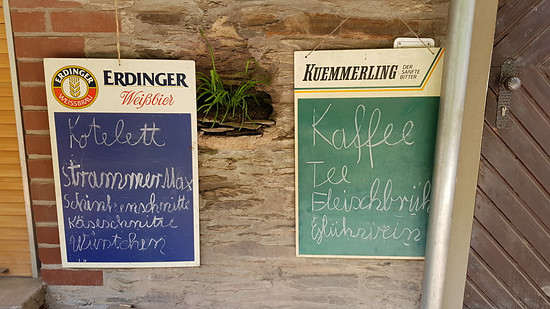 ERDINGER
WEISSBRÄU
ERDINGER
Weißbier
Kotelett
Strammer Max
Schinkenschnitte
Käseschnitte
Würstchen
KUEMMERLING
DER
SANFTE
BITTER
Kaffee
Tee
Fleischbrüh
Glühwein